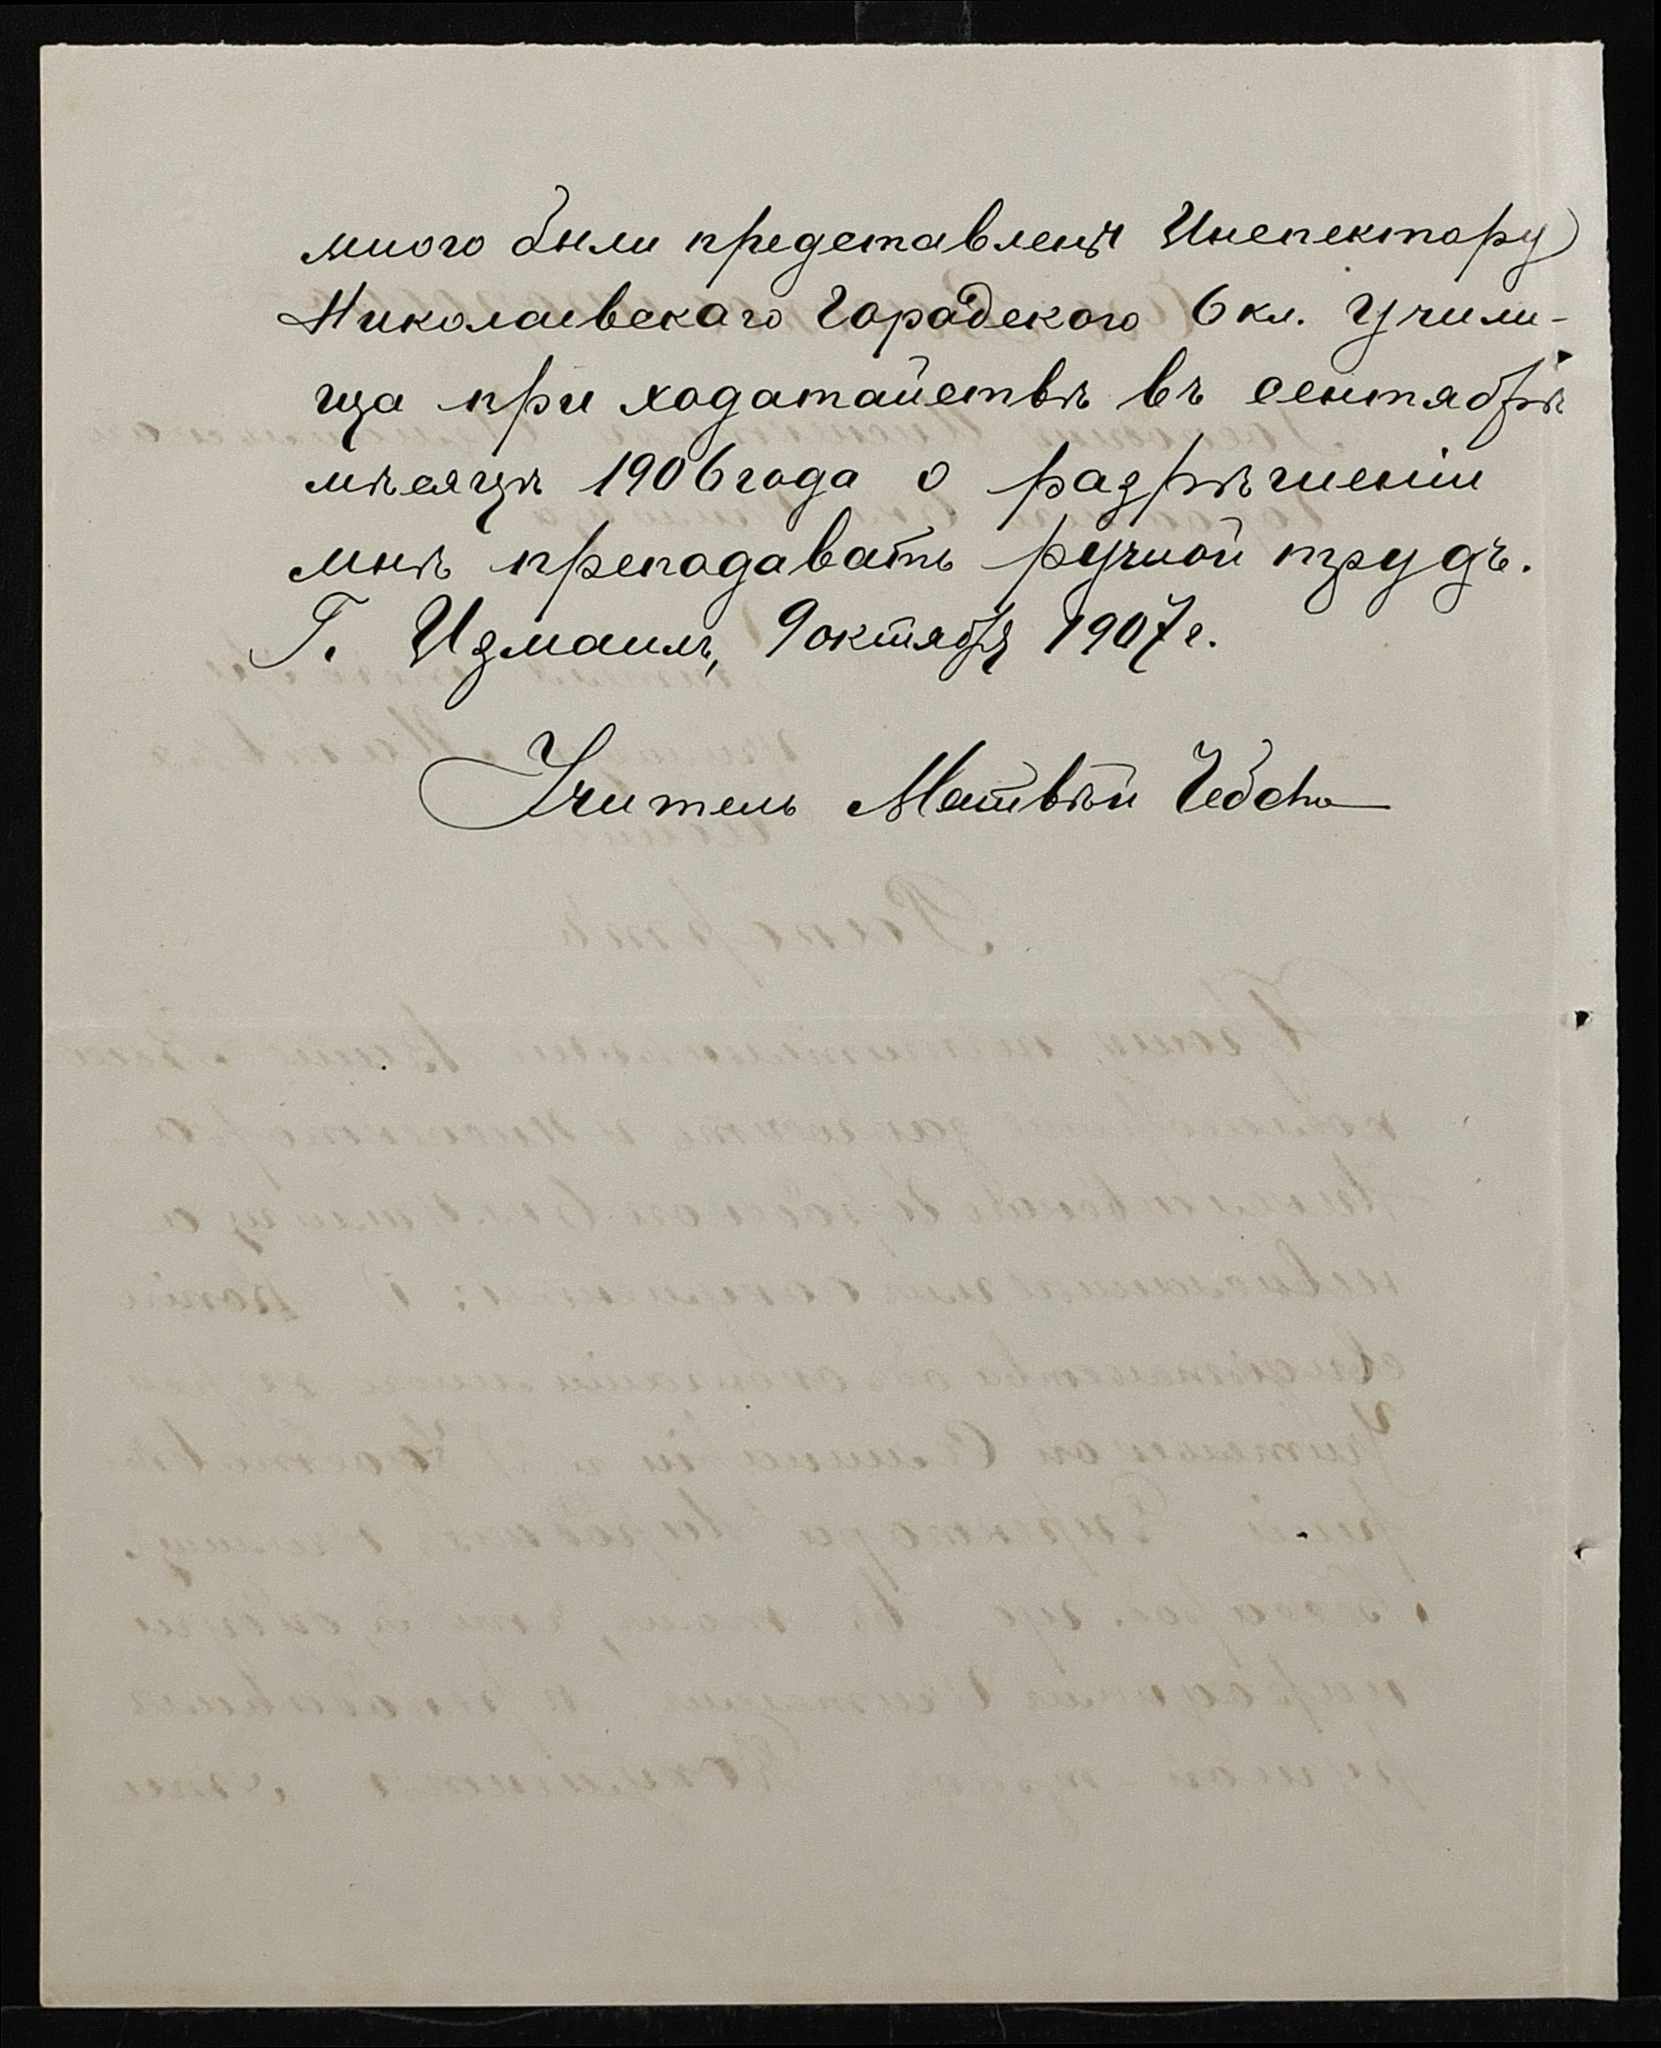 мною были представлены Инспектору
Николаевскаго Городского 6 кл. Учили-
ща при ходатайствѣ въ сентябрѣ
мѣсяцѣ 1906 года о разрѣшеніи
мнѣ преподавать ручной трудъ.
Г. Измаилъ, 9 октября 1907 г.
Учитель Матвѣй